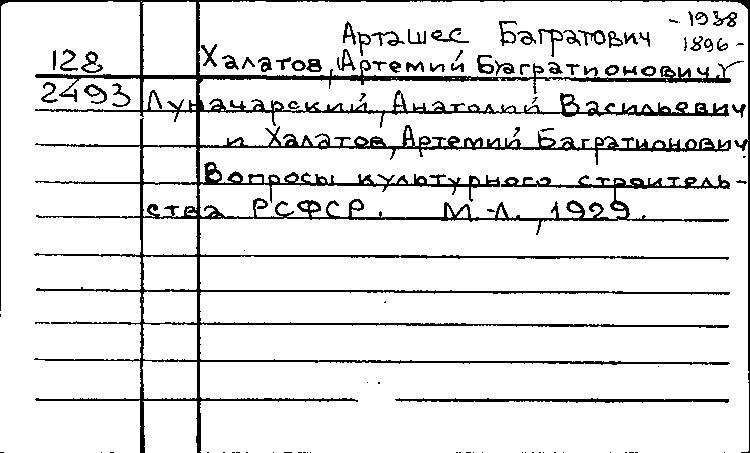 Арташес Багратович - 1938
1896 -
128 Халатов, Артемий Багратионович
2493 Луначарский, Анатолий Васильевич
и Халатов, Артемий Багратионович
Вопросы культурного строитель-
ства РСФСР. М.-Л., 1929.